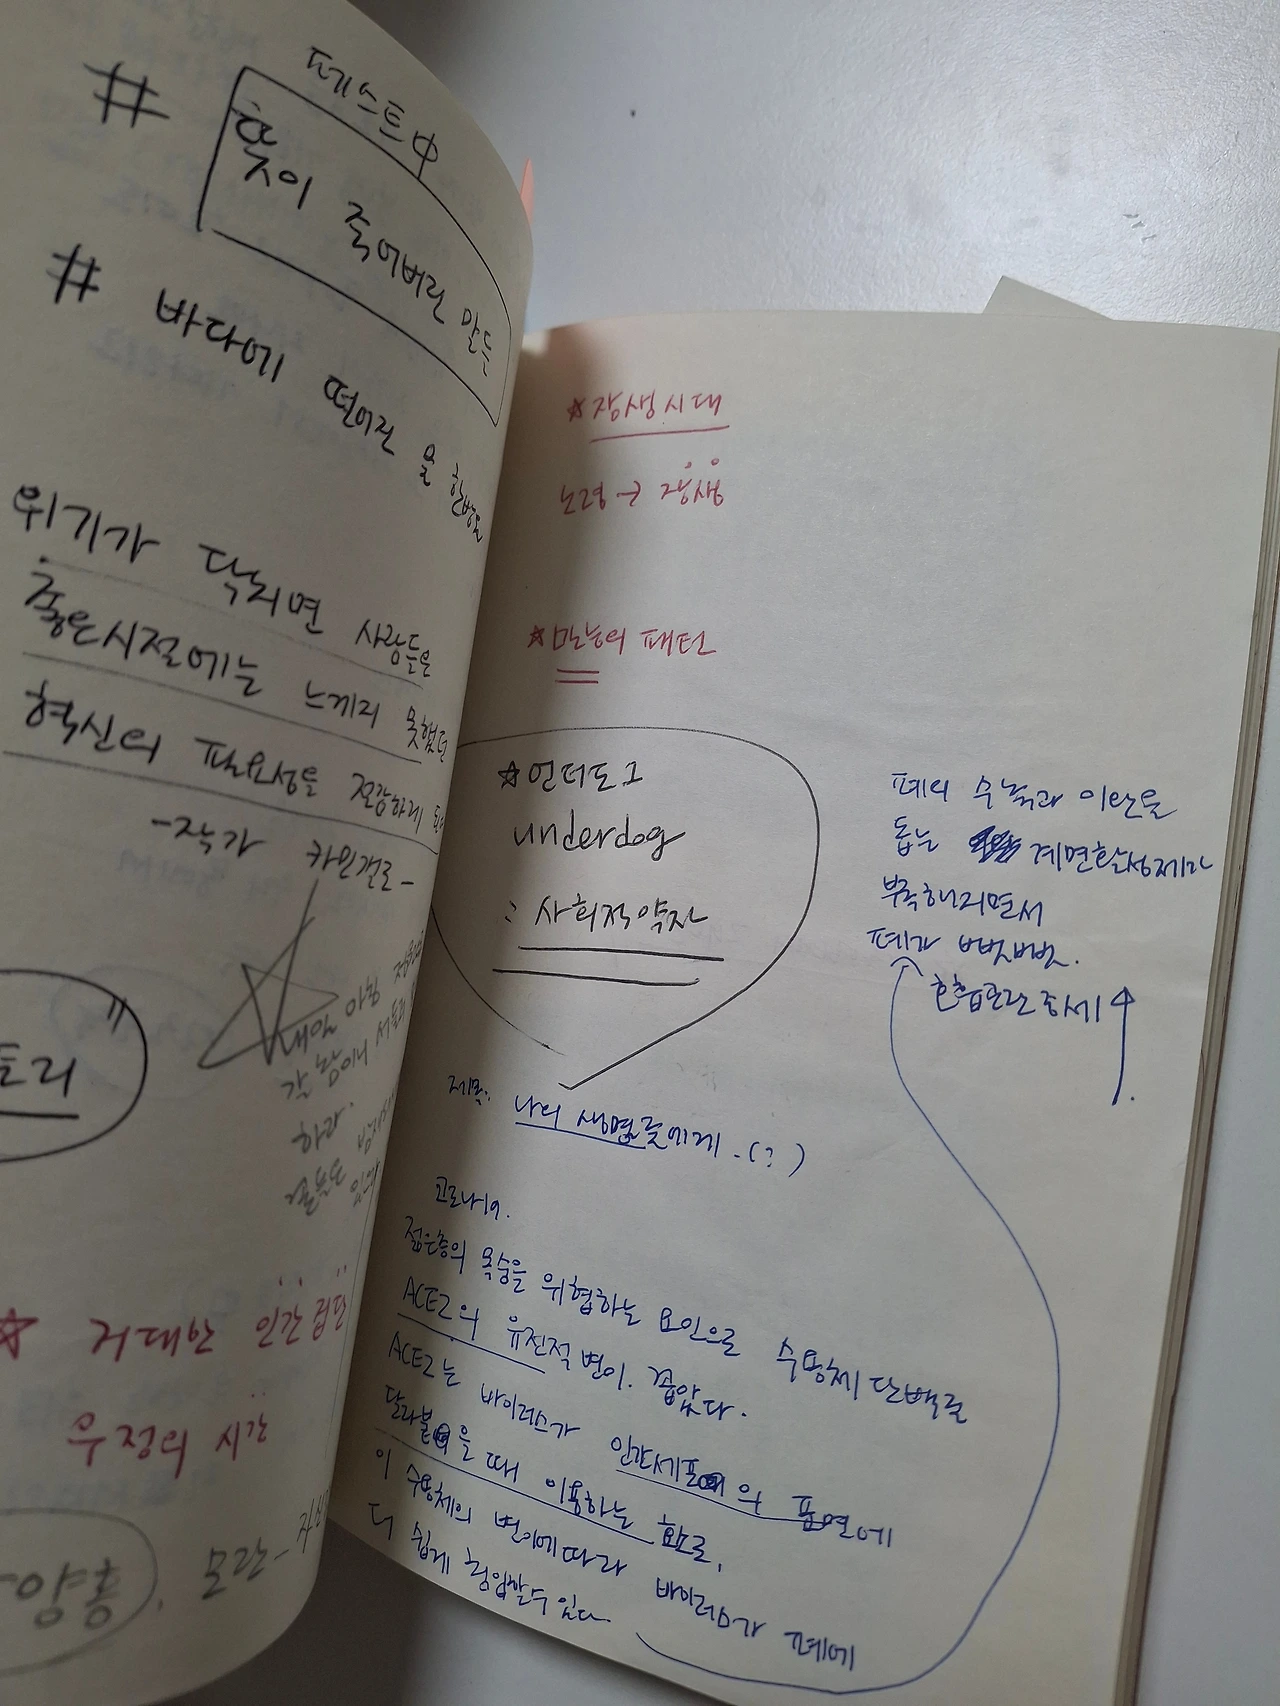 페스트中
#
꽃이 죽어버린 말들
# 바다에 떨어진 물 한방울
위기가 닥치면 사람들은
좋은시절에는 느끼지 못했던
혁신의 필요성을 절감하게
-작가 카민걸로-
내일 아침
갈 참이니 서둘러
하라.
토리"
☆ 거대한 인간집단
우정의 시간
모란-
☆장생시대
노령 → 장생
☆만능의 패턴
☆언더도그
underdog
: 사회적약자
제목: 나의 생명들에게.(?)
폐의 수축과 이완을
돕는 계면활성제가
부족해지면서
폐가 뻣뻣.
호흡곤란증세↑.
코로나19.
젊은층의 목숨을 위협하는 요인으로 수용체 단백질
ACE2의 유전적 변이. 꼽았다.
ACE2는 바이러스가 인간세포의 표면에
달라붙을 때 이용하는 활로,
이 수용체의 변이에따라 바이러스가 폐에
더 쉽게 침입할수 있다